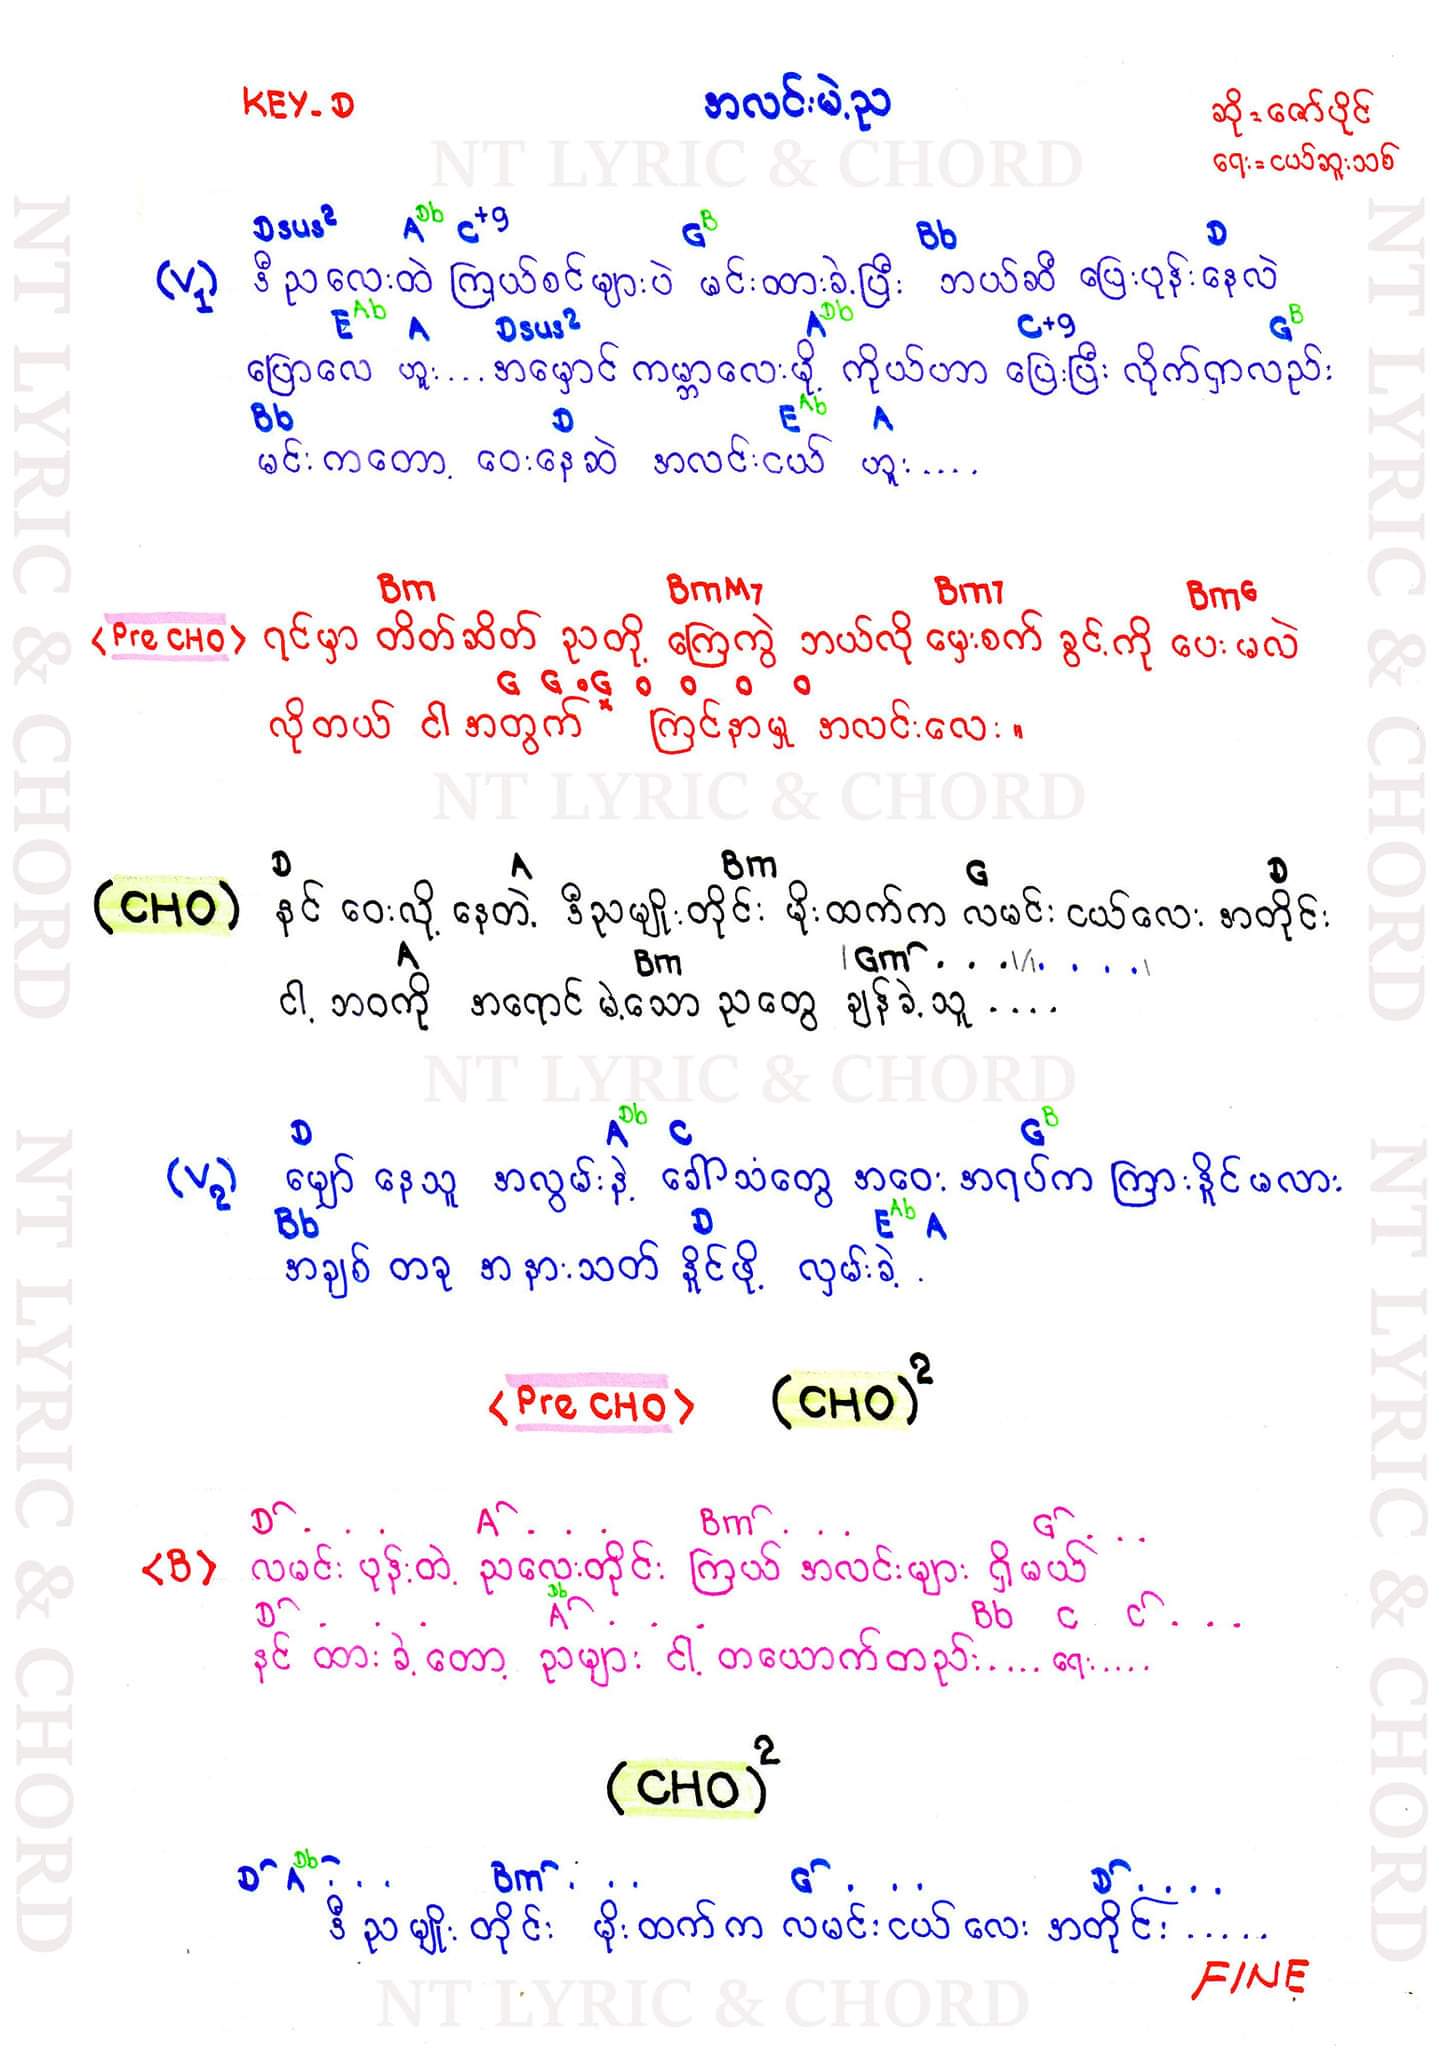 KEY-D
အလင်းမဲ့ည
ဆို = ဇော်ပိုင်
ရေး = ငယ်ဆူးသစ်
NT LYRIC & CHORD
Dsus2 A Db C+9 G B Bb D
(V1) ဒီညလေးထဲ ကြယ်စင်များပဲ မင်းထားခဲ့ပြီး ဘယ်ဆီ ပြေးပုန်းနေလဲ
E Ab A Dsus2 A Db C+9 G B
ပြောလေ ဟူး.... အမှောင် ကမ္ဘာလေးမို့ ကိုယ်ဟာ ပြေးပြီး လိုက်ရှာလည်း
Bb D E Ab A
မင်းကတော့ ဝေးနေဆဲ အလင်းငယ် ဟူး....
Bm BmM7 Bm7 Bm6
<Pre CHO> ရင်မှာ တိတ်ဆိတ် ညတို့ ကြေကွဲ ဘယ်လို မှေးစက် ခွင့်ကို ပေးမလဲ
G G . G x o o o o
လိုတယ် ငါ့အတွက် ကြင်နာမှု အလင်းလေး။
NT LYRIC & CHORD
D A Bm G D
(CHO) နင် ဝေးလို့ နေတဲ့ ဒီညမျိုးတိုင်း မိုးထက်က လမင်း ငယ်လေး အတိုင်း
A Bm Gm . . . . . . .
ငါ့ ဘဝကို အရောင် မဲ့သော ညတွေ ချန်ခဲ့သူ ....
NT LYRIC & CHORD
D A Db C G B
(V2) မျှော် နေသူ အလွမ်းနဲ့ ခေါ်သံတွေ အဝေး အရပ်က ကြားနိုင်မလား
Bb D E Ab A
အချစ် တခု အနားသတ် နိုင်ဖို့ လှမ်းခဲ့ .
<Pre CHO> (CHO)2
D . . . A . . . Bm . . . G . . .
<B> လမင်း ပုန်းတဲ့ ညလေးတိုင်း ကြယ် အလင်းများ ရှိမယ်
D . . . A Db . . . Bb C C . . .
နင် ထားခဲ့တော့ ညများ ငါ့ တယောက်တည်း..... ရေး....
(CHO)2
D A Db . . . Bm . . . G . . . D . . . .
ဒီညမျိုး တိုင်း မိုးထက်က လမင်းငယ်လေး အတိုင်း .....
FINE
NT LYRIC & CHORD
NT LYRIC & CHORD
NT LYRIC & CHORD
NT LYRIC & CHORD
NT LYRIC & CHORD